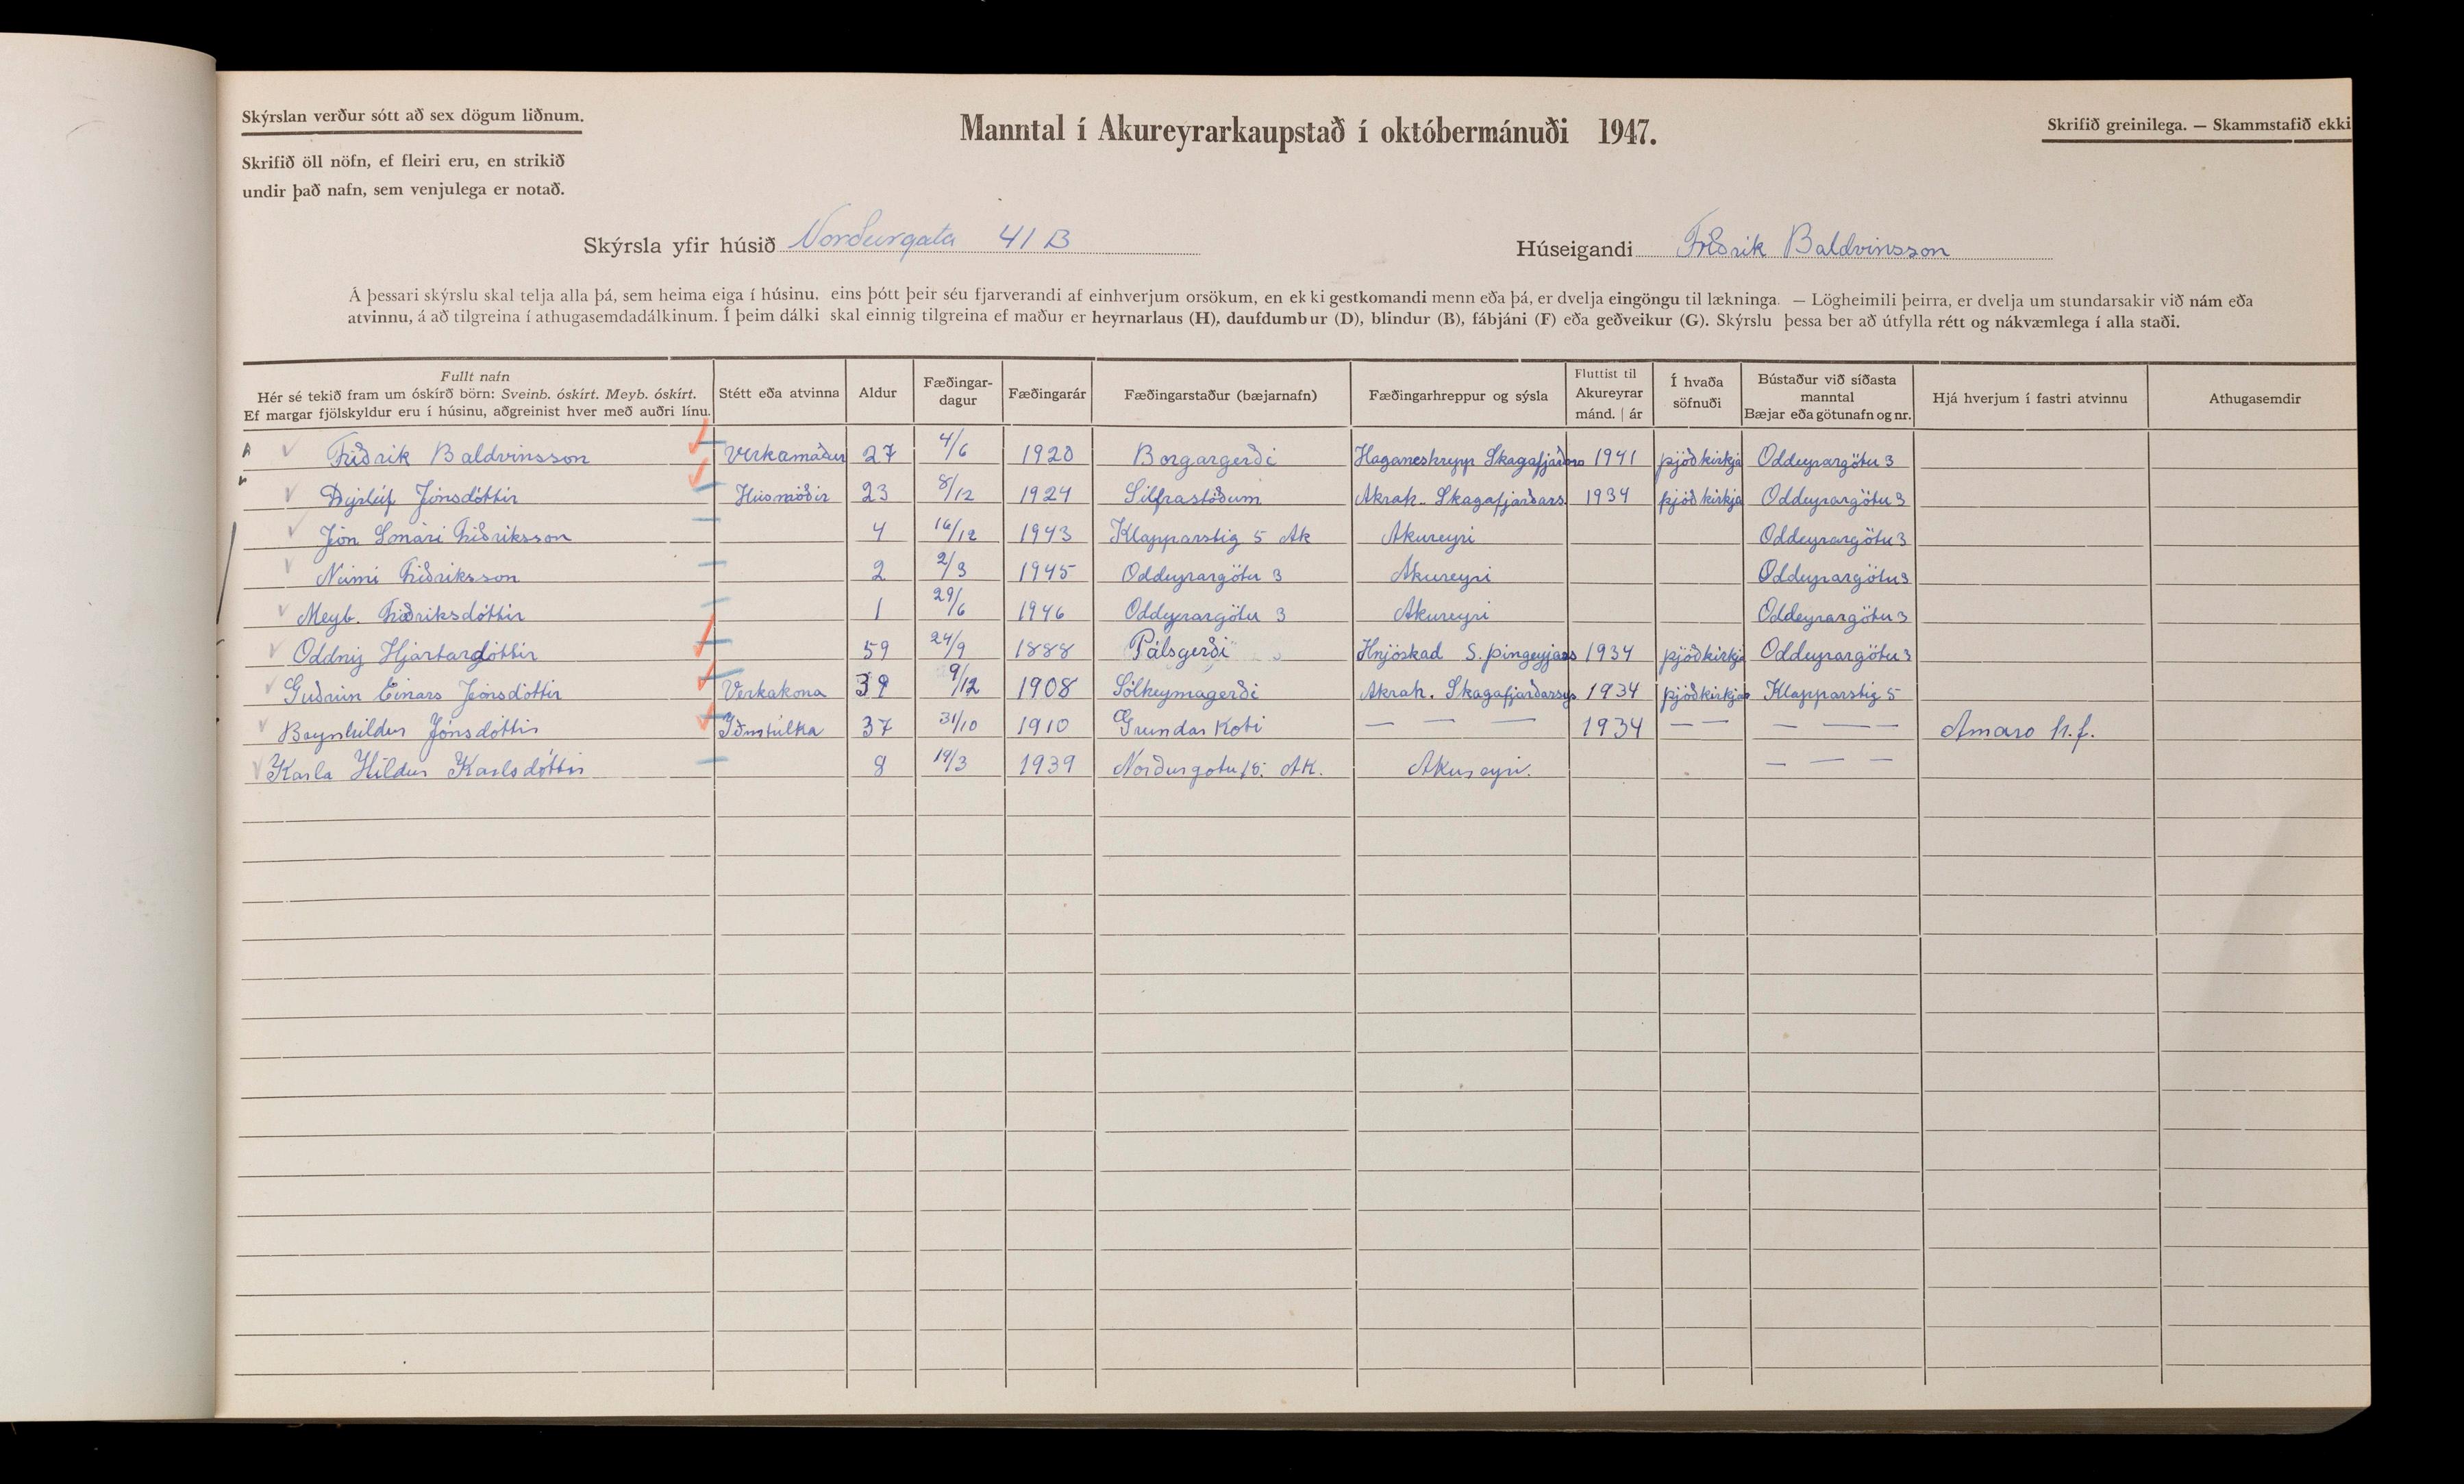 Skýrslan verður sótt að sex dögum liðnum.
Manntal í Akureyrarkaupstað í októbermánuði 1947.
Skrifið greinilega. — Skammstafið ekki
Skrifið öll nöfn, ef fleiri eru, en strikið
undir það nafn, sem venjulega er notað.
Skýrsla yfir húsið Norðurgata 41 B
Húseigandi Friðrik Baldvinsson
Á þessari skýrslu skal telja alla þá, sem heima eiga í húsinu, eins þótt þeir séu fjarverandi af einhverjum orsökum, en ekki gestkomandi menn eða þá, er dvelja eingöngu til lækninga. — Lögheimili þeirra, er dvelja um stundarsakir við nám eða
atvinnu, á að tilgreina í athugasemdadálkinum. Í þeim dálki skal einnig tilgreina ef maður er heyrnarlaus (H), daufdumbur (D), blindur (B), fábjáni (F) eða geðveikur (G). Skýrslu þessa ber að útfylla rétt og nákvæmlega í alla staði.
Fullt nafn
Hér sé tekið fram um óskírð börn: Sveinb. óskírt. Meyb. óskírt.
Ef margar fjölskyldur eru í húsinu, aðgreinist hver með auðri línu.
Stétt eða atvinna
Aldur
Fæðingar-
dagur
Fæðingarár
Fæðingarstaður (bæjarnafn)
Fæðingarhreppur og sýsla
Fluttist til
Akureyrar
mánd. | ár
Í hvaða
söfnuði
Bústaður við síðasta
manntal
Bæjar eða götunafn og nr.
Hjá hverjum í fastri atvinnu
Athugasemdir
Friðrik Baldvinsson Verkamaður 27 4/6 1920 Borgargerði Haganeshrepp 1941 þjóðkirkja Oddeyrargötu 3
Jónsdóttir Húsmóðir 23 8/12 1924 Silfrastöðum Akrah. Skagafjarðars. 1934 þjóðkirkja Oddeyrargötu 3
Jón Smári Friðriksson 4 16/12 1943 Klapparstig 5 Ak Akureyri Oddeyrargötu 3
Númi Friðriksson 2 2/3 1945 Oddeyrargötu 3 Akureyri Oddeyrargötu 3
Meyb. Friðriksdóttir 1 29/6 1946 Oddeyrargötu 3 Akureyri Oddeyrargötu 3
Oddný Hjartardóttir 59 24/9 1888 Pálsgerði Hnjóskad S. þingeyjars 1934 þjóðkirkja Oddeyrargötu 3
Guðrún Einars Jónsdóttir Verkakona 39 9/12 1908 Sólheymagerði Akrah. Skagafjarðarsys 1934 þjóðkirkja Klapparstig 5
Brynhildur Jónsdóttir Iðnstúlka 37 31/10 1910 Grundar Koti — — — 1934 — — — — — Amaro h.f.
Karla Hildur Karlsdóttir 8 19/3 1939 Norðurgotu AK. Akureyri. — — —